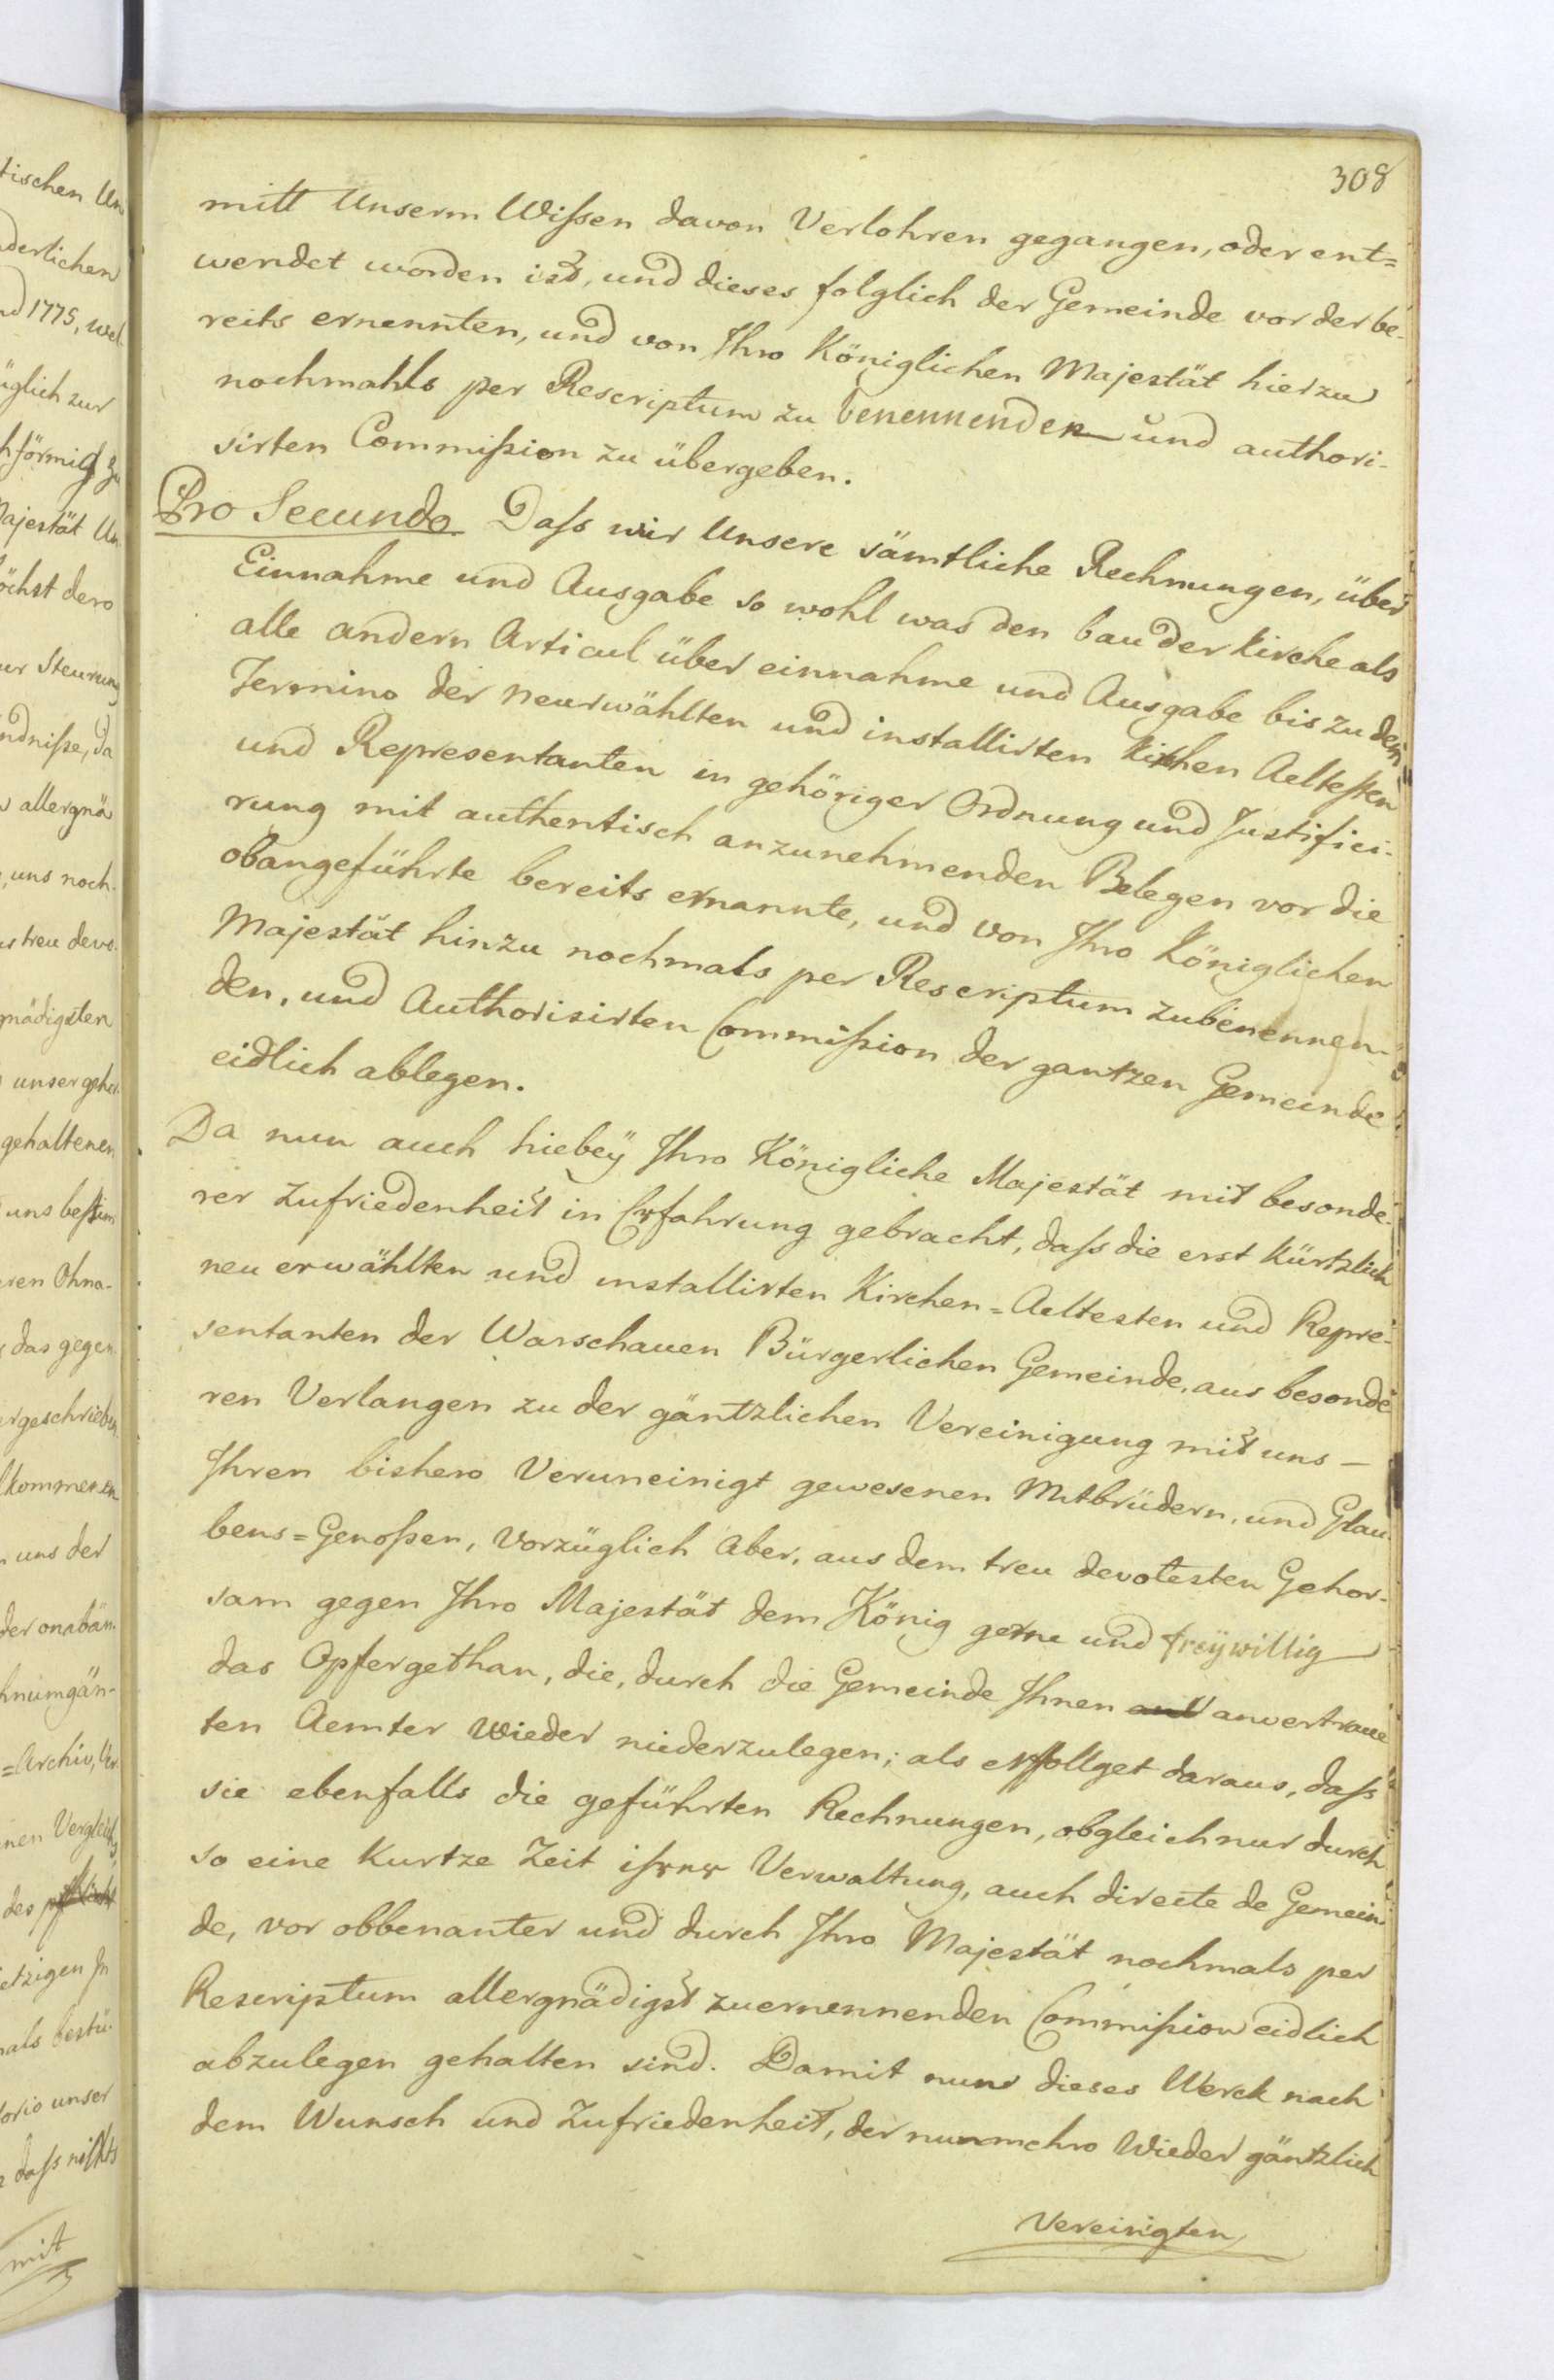 308
mitt Unserm Wißen davon Verlohren gegangen, oder ent=
wendet worden ist, und dieses folglich der Gemeinde vor der be-
reits ernennten, und von Ihro Königlichen Majestät hierzu
nochmahls per Rescriptum zu benennenden und authori-
sirten Commißion zu übergeben.
Pro Secundo Daß wir Unsere sämtliche Rechnungen, über
Einnahme und Ausgabe so wohl was den bau der kirche als
alle andern Articul über einnahme und Ausgabe bis zu dem
Termino der neurwählten und installirten kirchen Aeltesten
und Representanten in gehöriger Ordnung und Justifici-
rung mit authentisch anzunehmenden Belegen vor die
obangeführte bereits ernannte, und von Ihro Königlichen
Majestät hinzu nochmals per Rescriptum zubenennen-
den, und Authorisirten Commißion der gantzen Gemeinde
eidlich ablegen.
Da nun auch hiebeÿ Ihro Königliche Majestät mit besonde-
rer Zufriedenheit in Erfahrung gebracht, daß die erst kürtzlich
neu erwählten und installirten Kirchen=Aeltesten und Repre-
sentanten der Warschauen Bürgerlichen Gemeinde, aus besonde
ren Verlangen zu der gäntzlichen Vereinigung mit uns –
Ihren bishero Veruneinigt gewesenen Mitbrüdern, und Glau
bens=Genoßen, Vorzüglich Aber, aus dem treu devotesten Gehor-
sam gegen Ihro Majestät dem König gerne und freÿwillig
das Opfer gethan, die, durch die Gemeinde Ihnen anvertraue
ten Aemter Wieder niederzulegen; als erfollget daraus, daß
sie ebenfalls die geführten Rechnungen, obgleich nur durch
so eine Kurtze Zeit ihrer Verwaltung, auch directe de Gemein
de, vor obbenanter und durch Ihro Majestät nochmals per
Rescriptum allergnädigst zuernennenden Commißion eidlich
abzulegen gehalten sind. Damit nun dieses Werck nach
dem Wunsch und Zufriedenheit, der nunmehro Wieder gäntzlich
Vereinigten